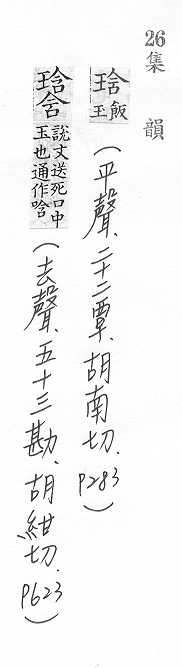 26集韻
琀飯玉(平聲.二十二覃.胡南切.P283)
琀含說文送死口中玉也通作唅(去聲.五十三勘.胡紺切.P623)